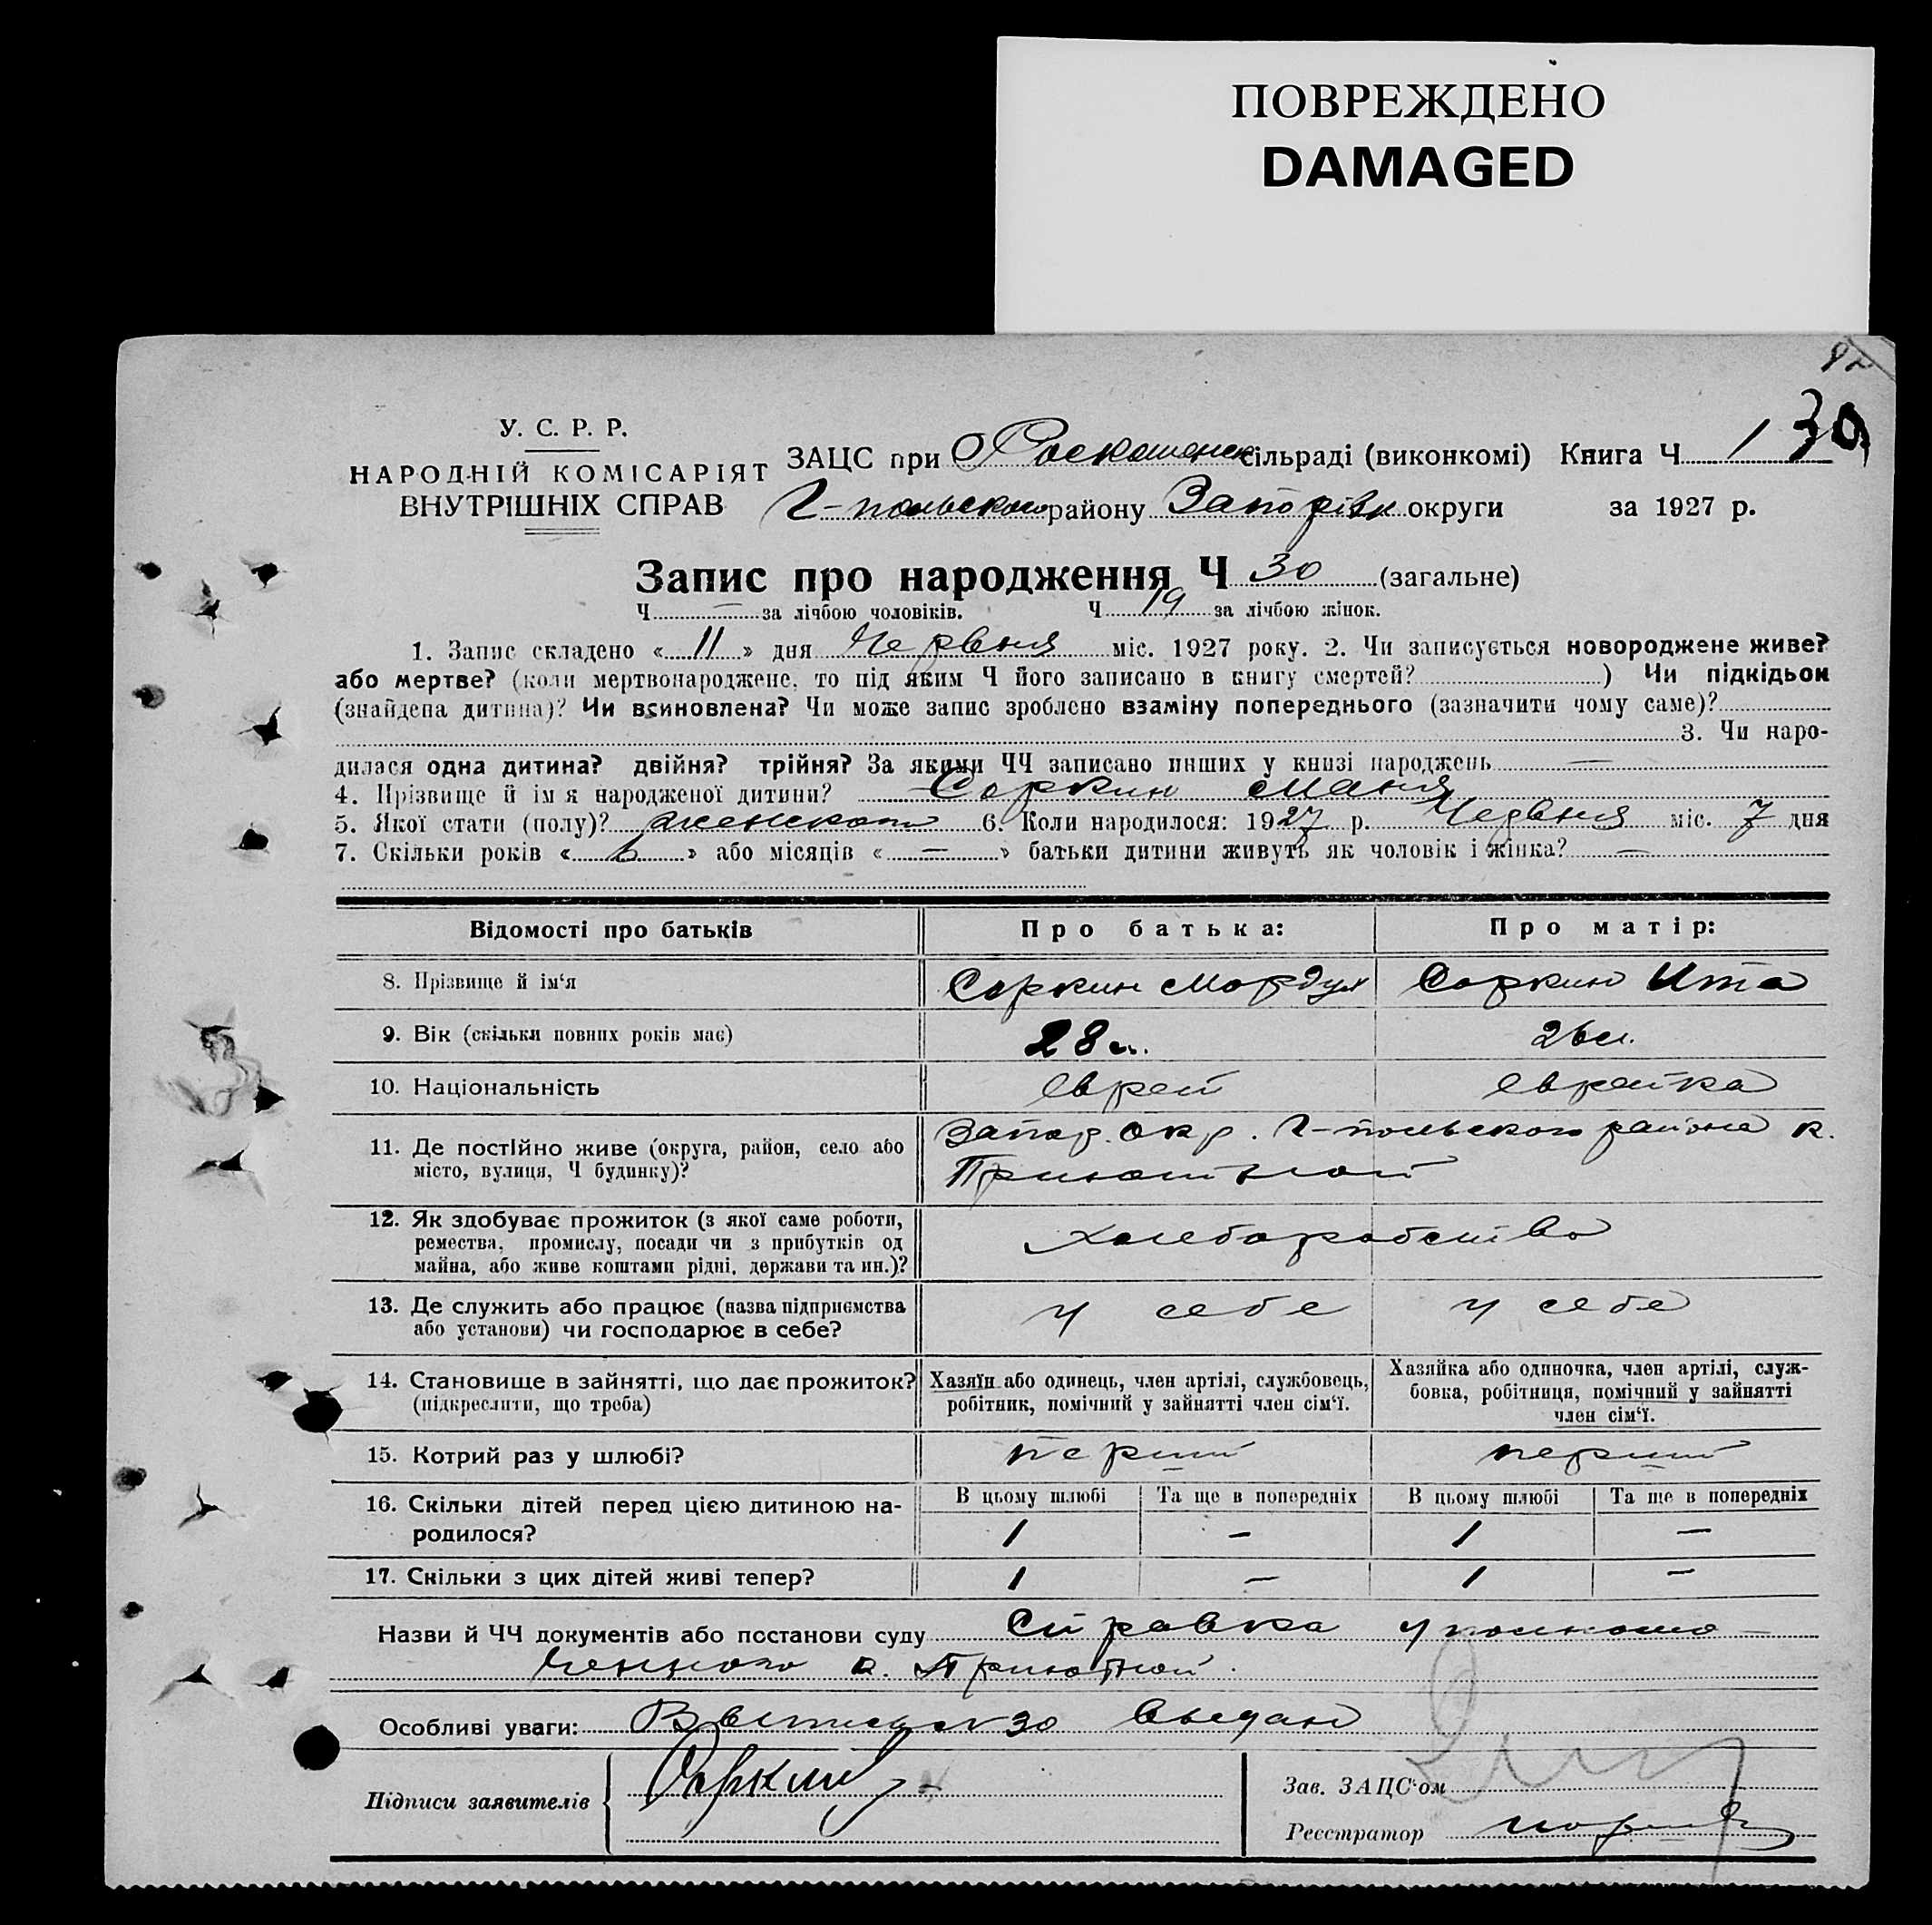 ПОВРЕЖДЕНО
DAMAGED
У. С. Р. Р.
НАРОДНІЙ КОМІСАРІЯТ
ВНУТРІШНІХ СПРАВ
ЗАЦС при сільраді (виконкомі) Книга Ч 1 30
Г-польского району Запоріж округи за 1927 р.
Запис про народження Ч 30 (загальне)
Ч — за лічбою чоловіків. Ч 19 за лічбою жінок.
1. Запис складено « 11 » дня Червня міс. 1927 року. 2. Чи записується новороджене живе?
або мертве? (коли мертвонароджене, то під яким Ч його записано в книгу смертей? ) Чи підкідьок
(знайдена дитина)? Чи всиновлена? Чи може запис зроблено взаміну попереднього (зазначити чому саме)?
3. Чи наро-
дилася одна дитина? двійня? трійня? За якими ЧЧ записано инших у книзі народжень —
4. Прізвище й ім я народженої дитини? Соркин Маня
5. Якої стати (полу)? женского 6. Коли народилося: 1927 р. Червня міс. 7 дня
7. Скільки років « 6 » або місяців « — » батьки дитини живуть як чоловік і жінка? —
Відомості про батьків Про батька: Про матір:
8. Прізвище й ім‘я Соркин Мордух Соркин Ита
9. Вік (скільки повних років має) 28 л. 26 л.
10. Національність еврей еврейка
11. Де постійно живе (округа, район, село або Запор. окр. Г-польского района к.
місто, вулиця, Ч будинку)? Приютной
12. Як здобуває прожиток (з якої саме роботи,
ремества, промислу, посади чи з прибутків од хлеборобство
майна, або живе коштами рідні, держави та ин.)?
13. Де служить або працює (назва підприємства у себе у себе
або установи) чи господарює в себе?
14. Становище в зайнятті, що дає прожиток? Хазяїн або одинець, член артілі, службовець, Хазяйка або одиночка, член артілі, служ-
(підкреслити, що треба) робітник, помічний у зайнятті член сім‘ї. бовка, робітниця, помічний у зайнятті
член сім‘ї.
15. Котрий раз у шлюбі? перший перший
16. Скільки дітей перед цією дитиною на- В цьому шлюбі Та ще в попередніх В цьому шлюбі Та ще в попередніх
родилося? 1 — 1 —
17. Скільки з цих дітей живі тепер? 1 — 1 —
Назви й ЧЧ документів або постанови суду Справка уполномо-
ченного к. Приютной.
Особливі уваги: 30 выдан
Підписи заявителів Соркин
Зав. ЗАЦС‘ом
Реєстратор